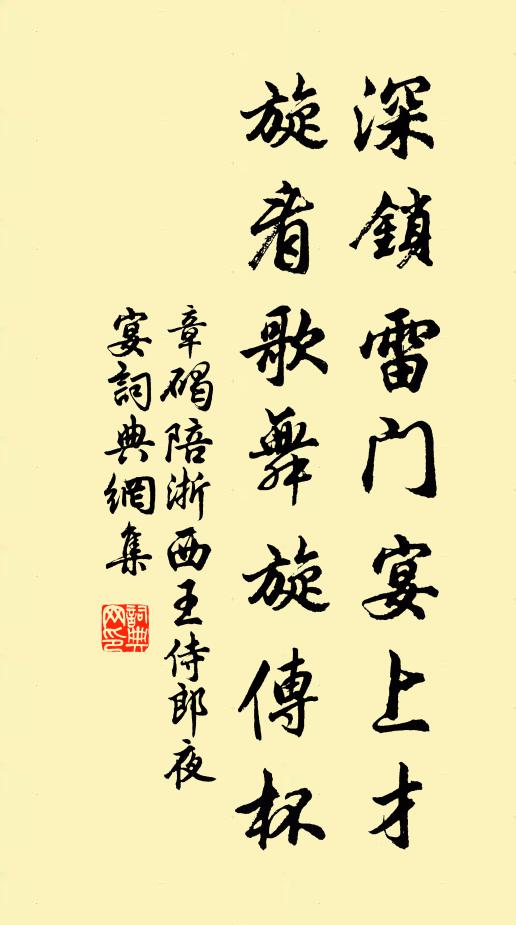 深鎖雷門宴上才
旋看歌舞旋傳杯
章碣陪浙西王侍郎夜
宴詞典網集
詞典
网印